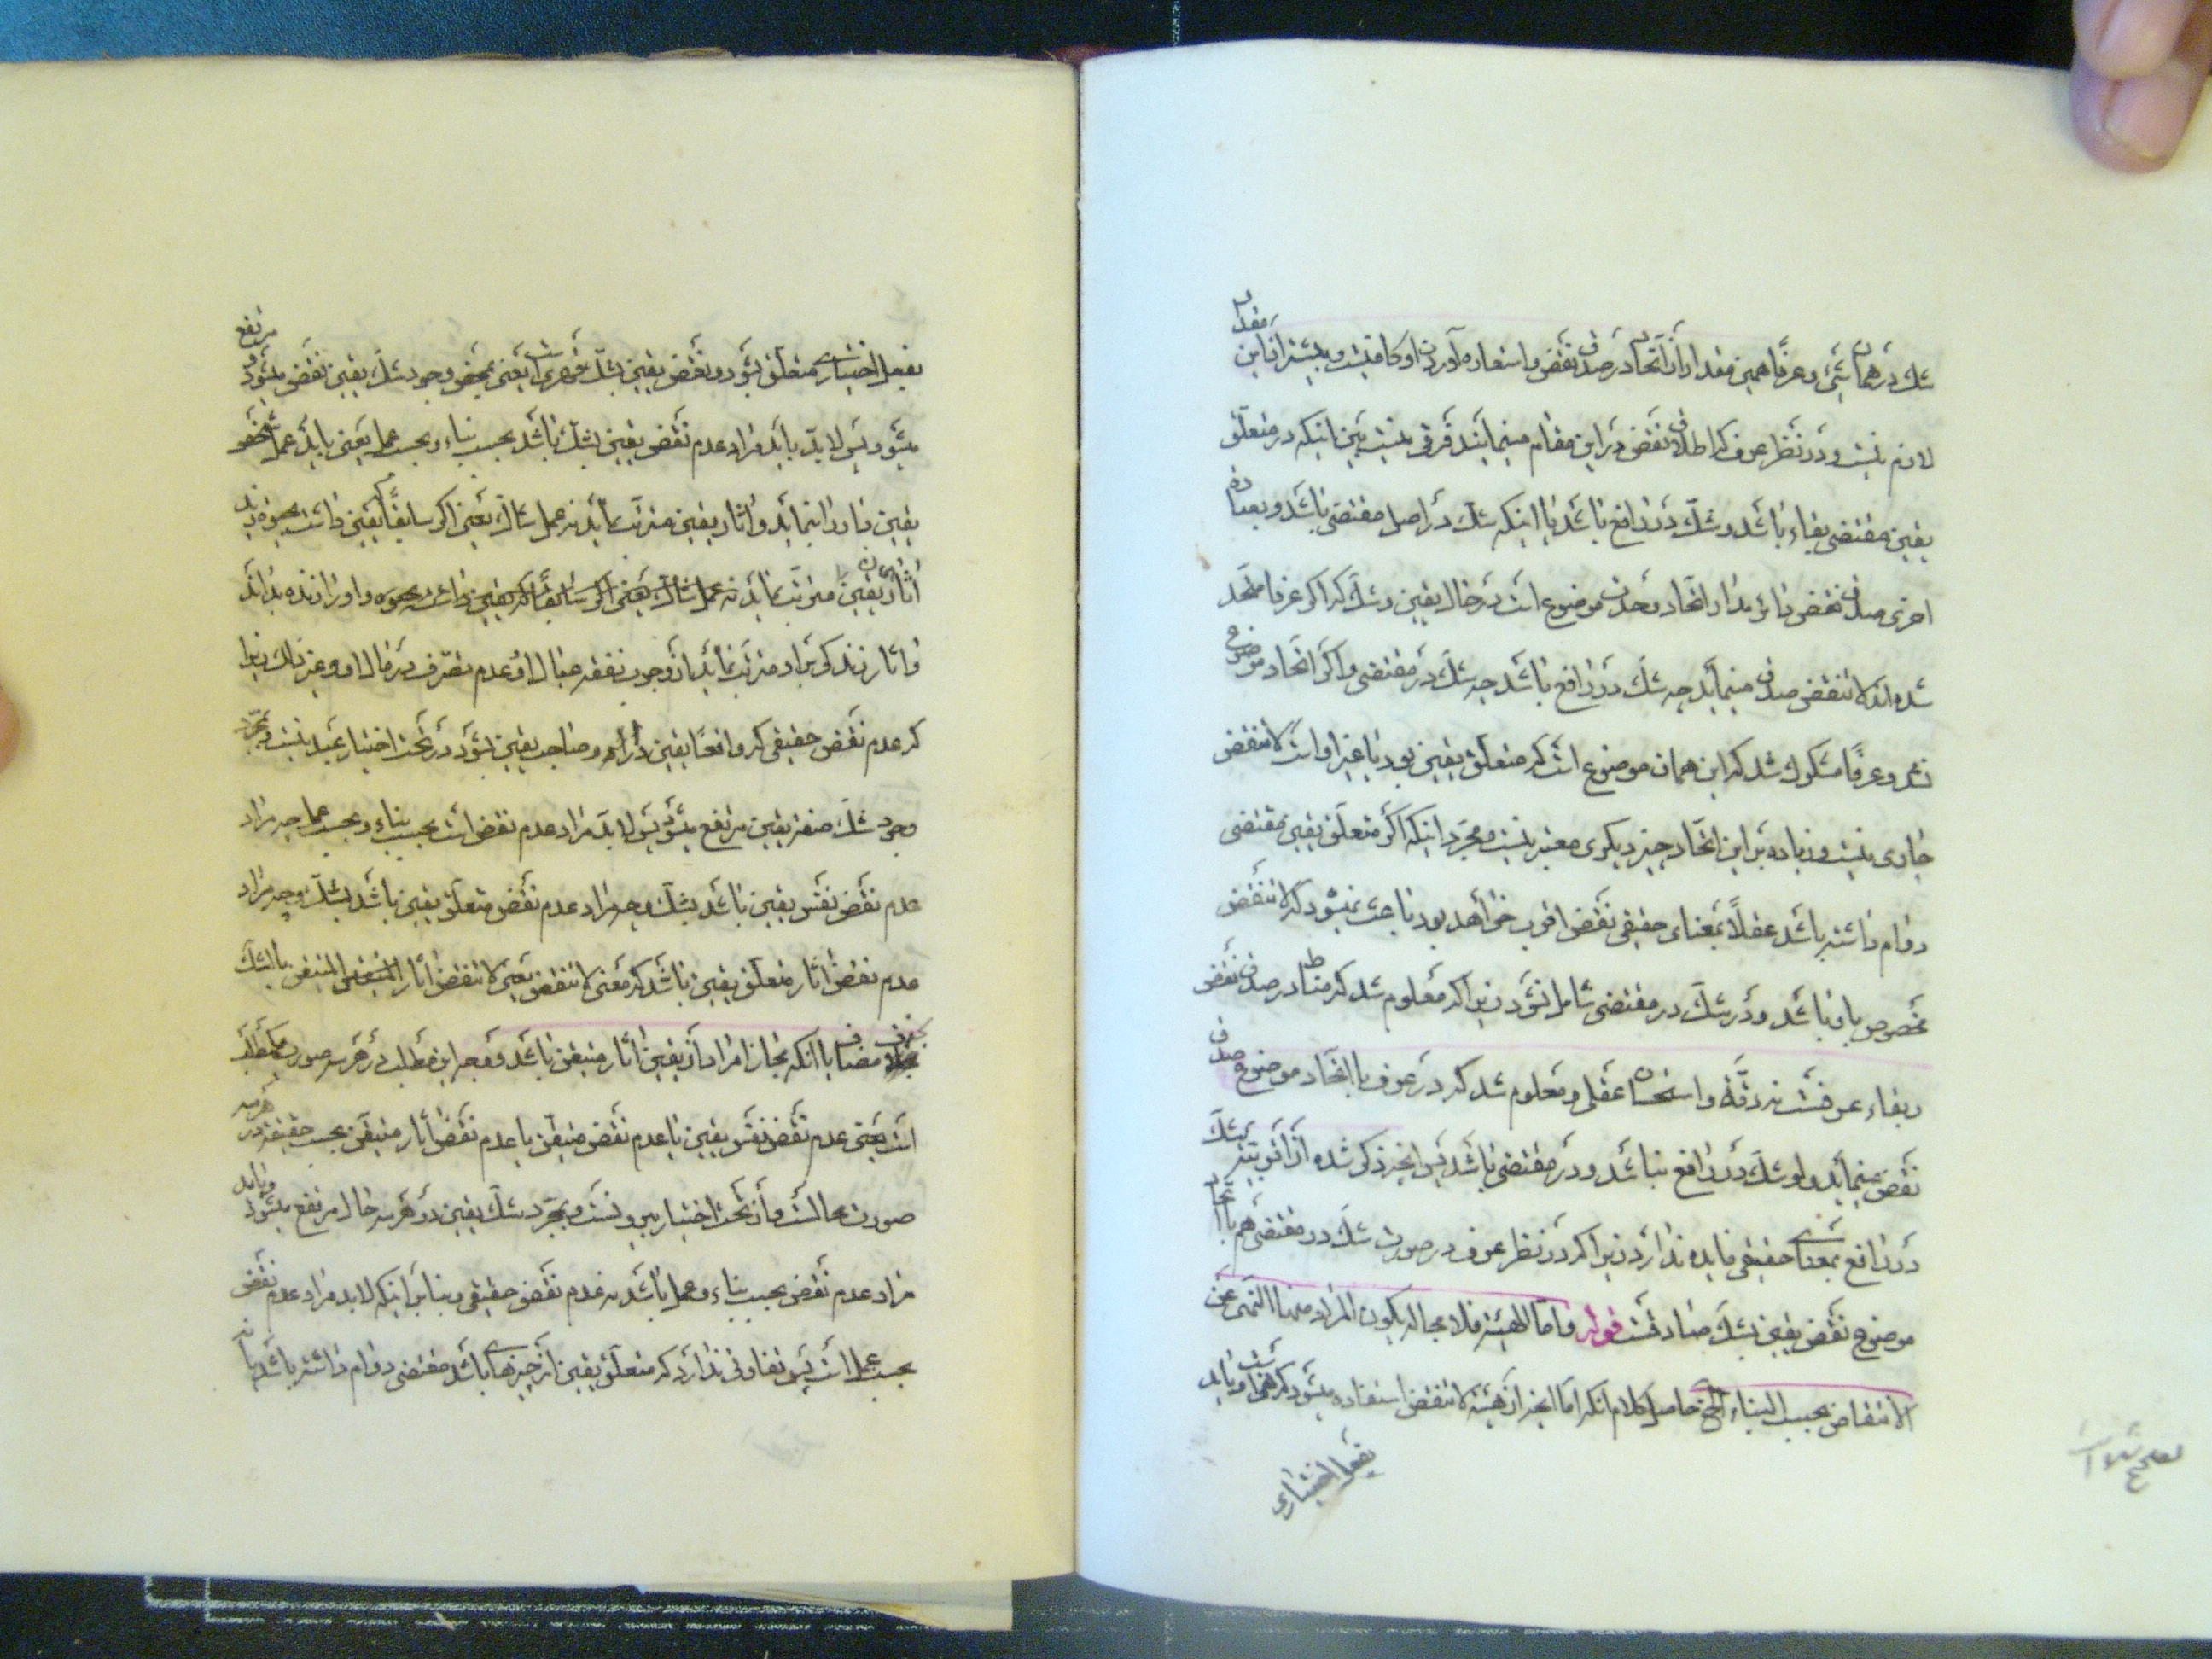 شک در همان شیئ و عرفا همین مقدار از اتحاد در صدق نقض و استعاره آوردن او کافیست و بیشتر از این مقدار
لازم نیست و در نظر عرف که اطلاق نقض در این مقام مینمایند فرقی نیست بین اینکه در متعلق
یقین مقتضی بقاء باشد و شک در رافع باشد یا اینکه شک در اصل مقتضی باشد و بعباره
اخری صدق نقض دائر مدار اتحاد وحدت موضوع است در حال یقین و شک که اگر عرفا متحد
شده اند لا تنقض صدق مینماید چه شک در رافع باشد چه شک در مقتضی و اگر اتحاد موضوع
نشد و عرفا مشکوک شد که این همان موضوع است که متعلق یقین بود یا غیر او است لا تنقض
جاری نیست و زیاده بر این اتحاد چیز دیگری معتبر نیست و مجرد اینکه اگر متعلق یقین مقتضی
دوام داشته باشد عقلاً بمعنای حقیقی نقض اقرب خواهد بود باعث نمیشود که لا تنقض
مخصوص باو باشد و در شک در مقتضی شامل نشود زیرا که معلوم شد که مناط در صدق نقض
و بقاء عرفست نه دقة و استحسان عقلی و معلوم شد که در عرف با اتحاد موضوع صدق
نقض مینماید ولو شک در رافع نباشد و در مقتضی باشد پس آنچه ذکر شده از اقربیت شک
در رافع بمعنای حقیقی فایده ندارد زیرا که در نظر عرف در صورت شک در مقتضی هم با اتحاد
موضوع نقض یقین بشک صادقست قوله و اما الهیئة فلا محاله یکون المراد منها النهی عن
الانتقاض بحسب البناء الخ حاصل کلام آنکه اما آنچه از هیئة لا تنقض استفاده میشود که نهی است و باید
بفعل اختیاری
تصحیح شد
بفعل اختیاری متعلق بشود و نقض یقین بشک قهری است یعنی بمحض وجود شک یقین نقض میشود و مرتفع
میشود پس لابد باید مراد عدم نقض یقین بشک باشد بحسب بناء و بحسب عمل یعنی باید عمل شخص
یقین دار را بنماید و اثار یقین مترتب نماید نه عمل شاک یعنی اگر سابقاً یقین داشت بحیوة زید
اثار یقین مترتب نماید نه عمل شاک یعنی اگر سابقاً که یقین داشت بحیوة و او را زنده بداند
و اثار زندگی بر او مترتب نماید از وجوب نفقه عیال او و عدم تصرف در مال او و غیر ذلک زیرا
که عدم نقض حقیقی که واقعاً یقین دارد و صاحب یقین بشود در تحت اختیار عبد نیست و بمجرد
وجود شک صفة یقین مرتفع میشود پس لابد مراد عدم نقض است بحسب بناء و بحسب عمل چه مراد
عدم نقض نفس یقین باشد بشک و چه مراد عدم نقض متعلق یقین باشد بشک و چه مراد
عدم نقض اثار متعلق یقین باشد که معنی لا تنقض یعنی لا تنقض اثار المتیقن بالشک
بحذف مضاف یا آنکه مجازا مراد از یقین اثار متیقن باشد و وجه این مطلب در هر سه صورت
است یعنی عدم نقض نفس یقین یا عدم نقض متیقن یا عدم نقض اثار متیقن بحسب حقیقة در هر سه
صورت محالست و از تحت اختیار بیرونست و بمجرد شک یقین در هر سه حال مرتفع میشود و باید
مراد عدم نقض بحسب بناء و عمل باشد نه عدم نقض حقیقی و بنا بر اینکه لابد مراد عدم نقض
بحسب عمل است پس تفاوتی ندارد که متعلق یقین از چیزهائی باشد مقتضی دوام داشته باشد یا نه